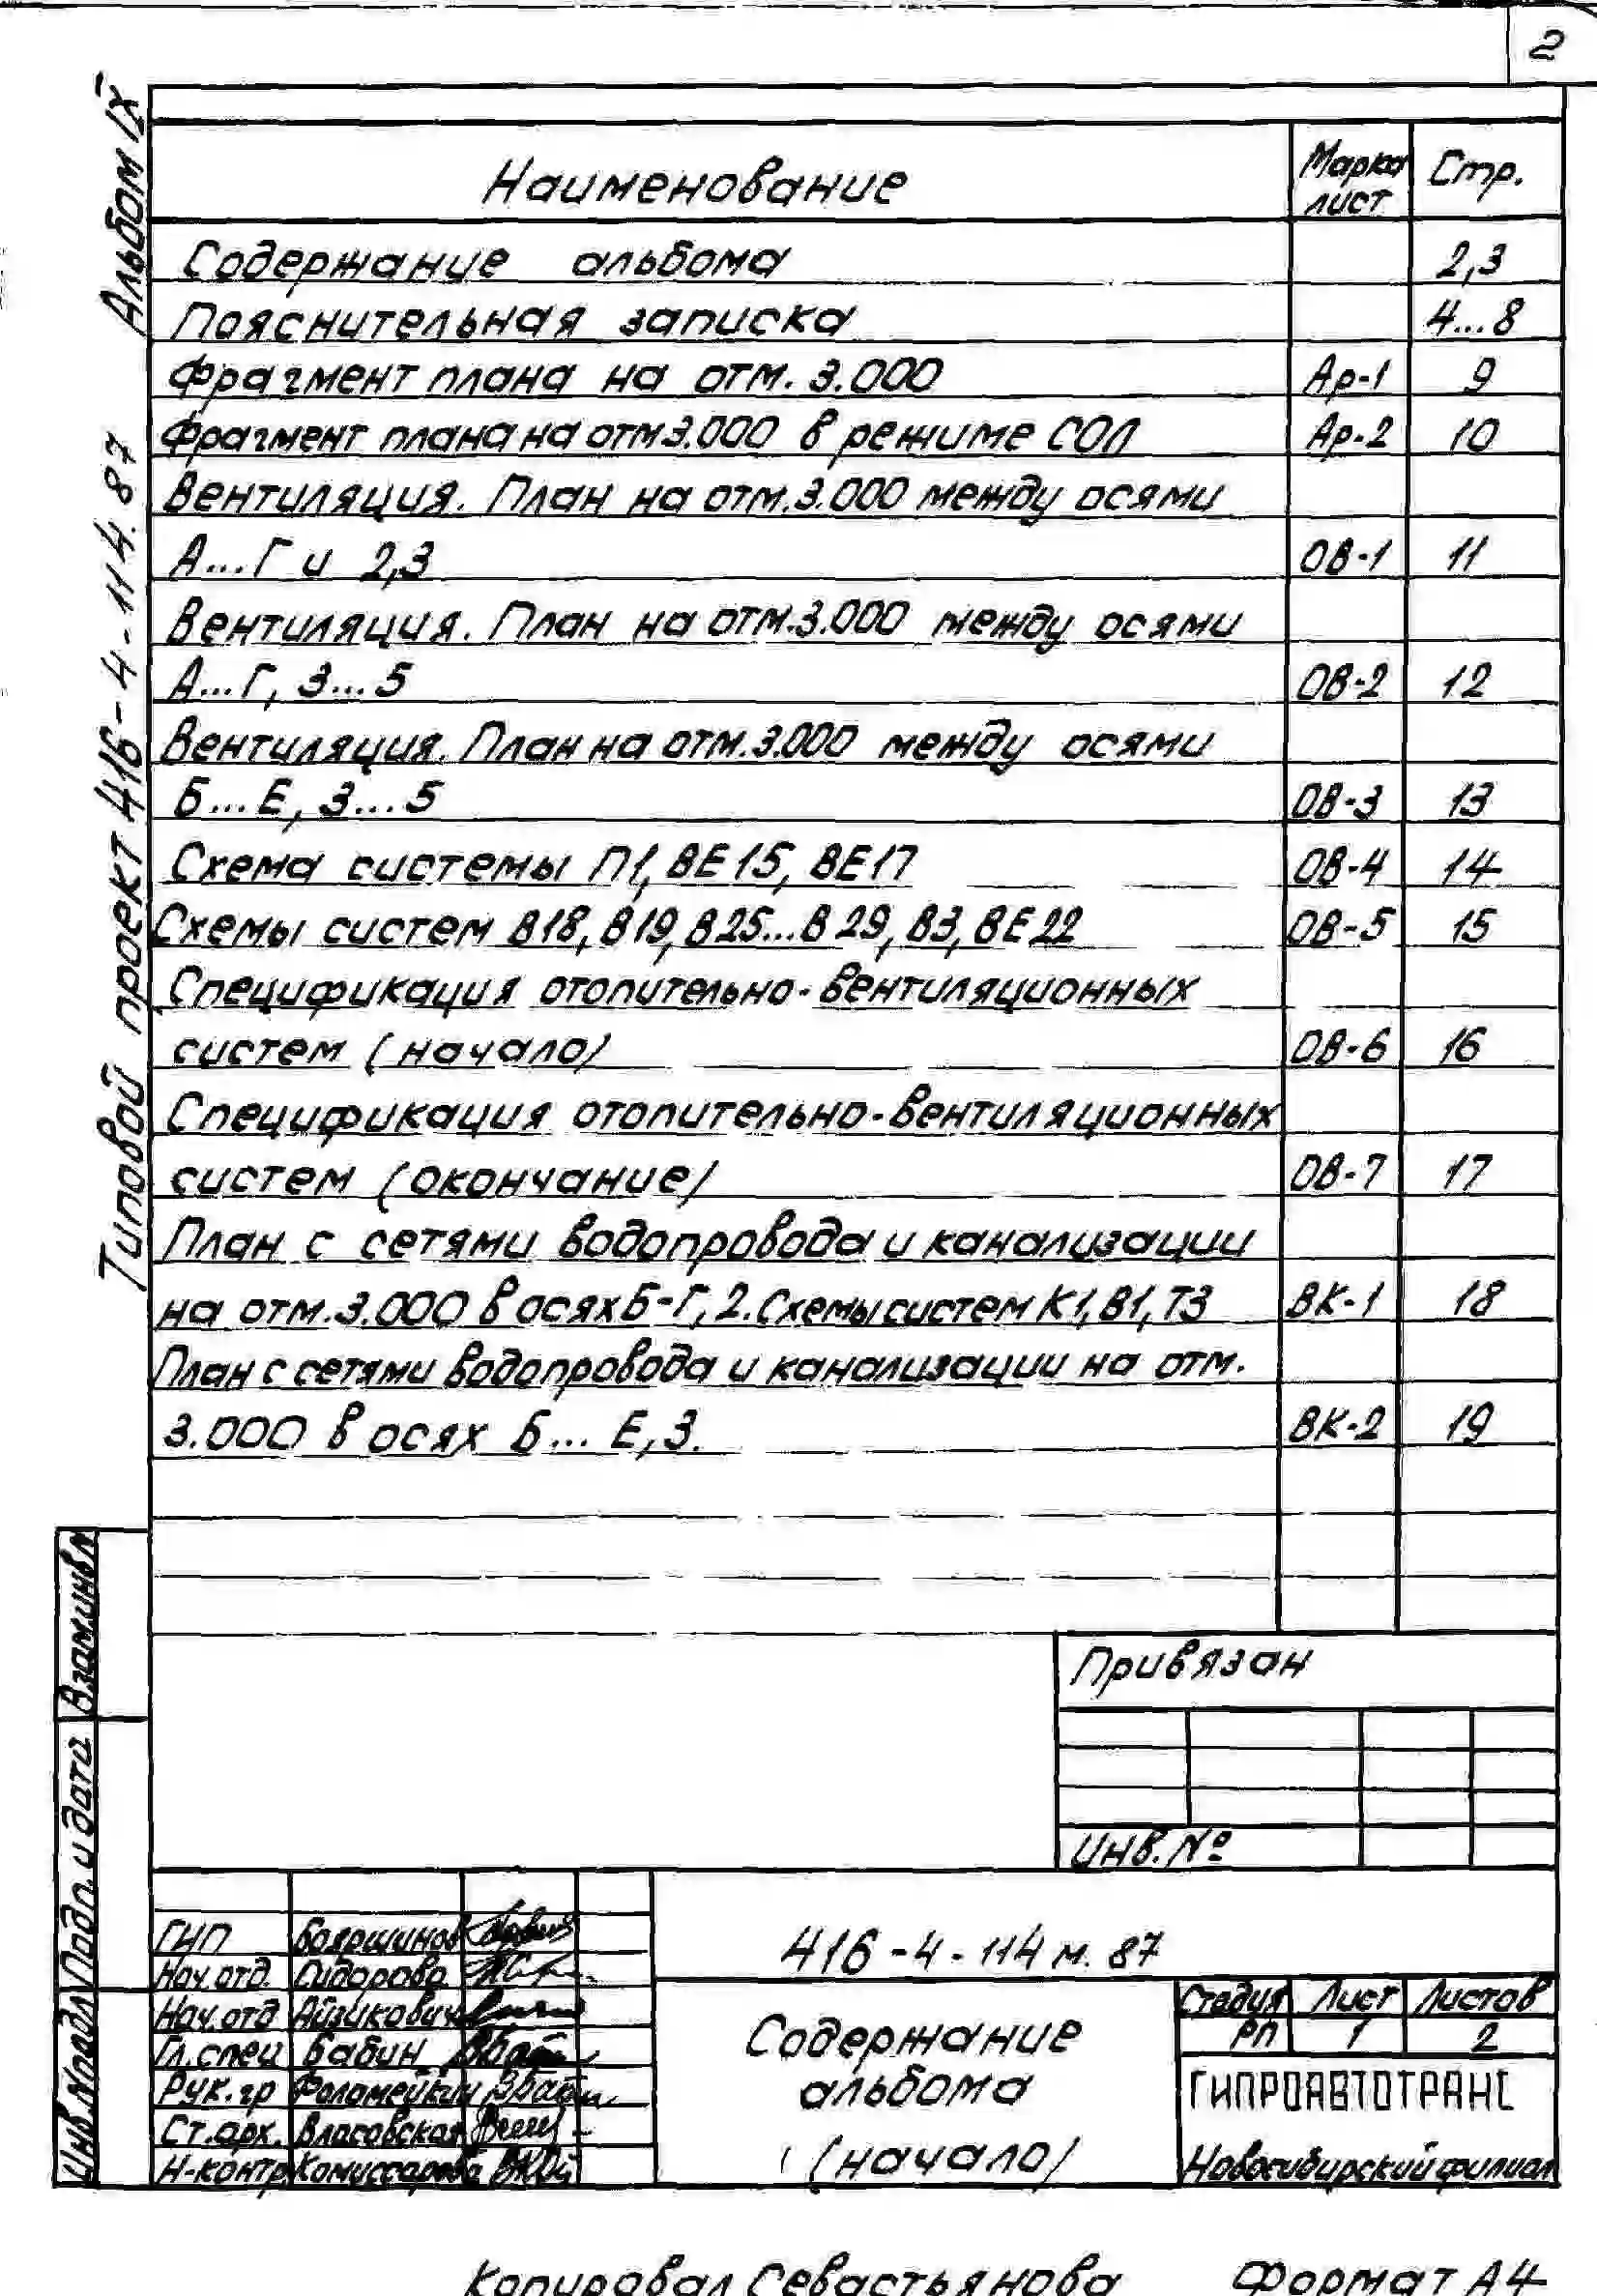 2
Альбом IX
Типовой проект 416-4-114.87
Наименование
Марка лист
Стр.
Содержание альбома 2,3
Пояснительная записка 4...8
Фрагмент плана на отм. 3.000 Ар-1 9
Фрагмент плана на отм 3.000 в режиме СОЛ Ар-2 10
Вентиляция. План на отм. 3.000 между осями
А...Г и 2,3 ОВ-1 11
Вентиляция. План на отм. 3.000 между осями
А...Г, 3...5 ОВ-2 12
Вентиляция. План на отм. 3.000 между осями
Б...Е, 3...5 ОВ-3 13
Схема системы П1, ВЕ15, ВЕ17 ОВ-4 14
Схемы систем В18, В19, В25...В29, В3, ВЕ22 ОВ-5 15
Спецификация отопительно-вентиляционных
систем (начало) ОВ-6 16
Спецификация отопительно-вентиляционных
систем (окончание) ОВ-7 17
План с сетями водопровода и канализации
на отм. 3.000 в осях Б-Г, 2. Схемы систем К1, В1, Т3 ВК-1 18
План с сетями водопровода и канализации на отм.
3.000 в осях Б... Е, 3. ВК-2 19
Привязан
Инв. №
Взам.инв.№
Подп. и дата
Инв.№подл
ГИП Бояршинов
Нач.отд. Сидорова
Нач.отд Айзикович
Гл.спец Бабин
Рук.гр Фоломейкин
Ст.арх. Власовская
Н-контр Комиссарова
416-4-114 м. 87
Содержание
альбома
(начало)
Стадия Лист Листов
РП 1 2
ГИПРОАВТОТРАНС
Новосибирский филиал
Копировал Севастьянова Формат А4